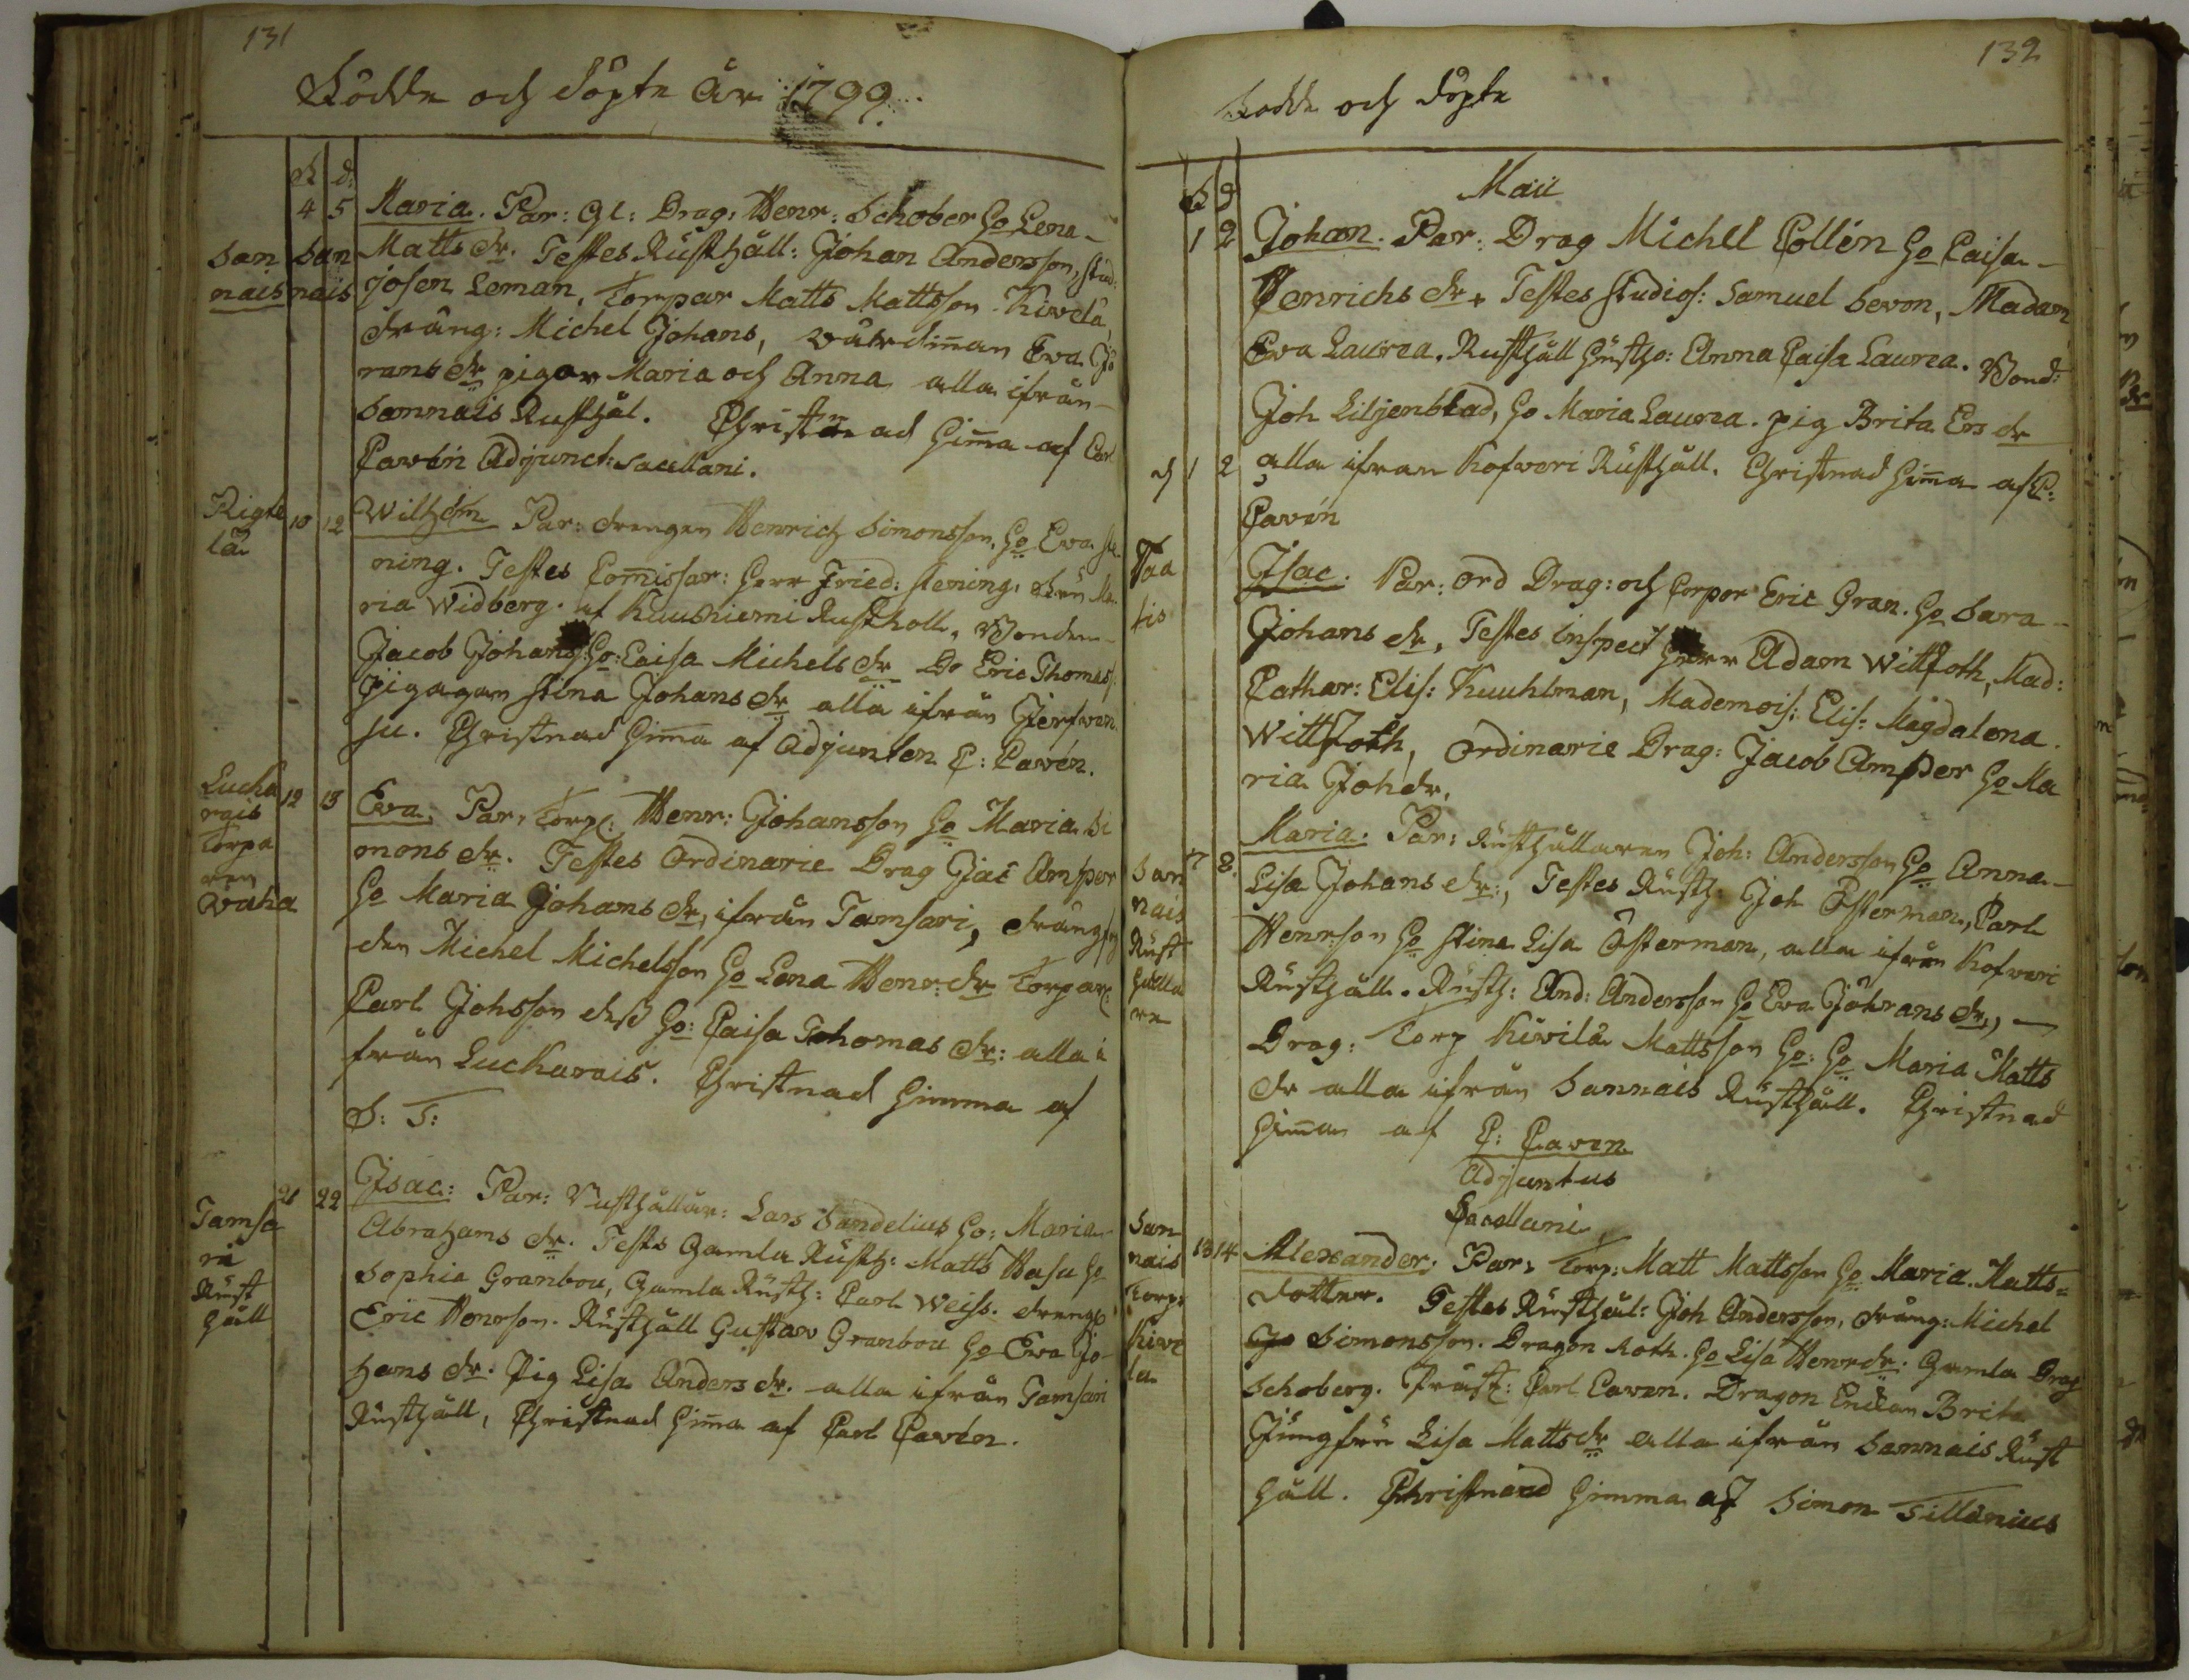 131
Födde och döpte År 1799
F d:
4 5 Maria. Par: Gl: Drag: Henr: Schober Ho Lena
San nais Matts dr. Testes Rusthåll: Johan Andersson, stud:
Josen Leman, Torpar Matts Mattsson Kivelä,
dräng: Michel Johans, värdinnan Eva Jö
rans dr pigor Maria och Anna alla ifrån
Sannais Rusthål. Christnad hemma af Carl
Cavén Adjunct: Sacellani.
Rigte lä 10 12 Wilhelm Par: drengen Henrich Simonsson, Ho Eva Ste
ning. Testes Commissar: Herr Fried: Stening, Fru Ma
ria Widberg. af Kuuskiemi Rustholl, Bonden
Jacob Johans: Ho: Caisa Michels dr Do Eric Thomas
pigagan Stina Johans dr alla ifrån Jerfven
su. Christnad hemma af Adjunten C: Cavén.
Lucka rais Torpa ren Waha 12 13 Eva. Par: Torp: Henr: Johansson Ho Maria Si
mons dr. Testes Ordinarie Drag Jac Amper
Ho Maria Johans dr, ifrån Tamsari, dräng
den Michel Michelsson Ho Lena Henr: dr Torpar:
Carl Johsson dess Ho: Caisa Thomas dr: alla i
från Luckarais. Christnad hemma af
S: T:
Tamsa ri Rust håll 21 22 Isac: Par: Rusthållar: Lars Sandelius Ho: Maria
Abrahams dr. Testes Gamla Rusth: Matts Hasu Ho
Sophia Granbou, Gamla Rusth: Carl Weiss. Dreng
Eric Henrson. Rusthåll Gustav Granbou Ho Eva Jo
hans dr. Pig Lisa Anders dr. alla ifrån Tamsari
Rusthåll, Christnad hemma af Carl Cavén.
132
Födde och döpte
F d
Maii
1 2 Johan. Par: Drag Michel Collén Ho Caisa
Henrichs dr. Testes studios: Samuel Sevon, Madam
Eva Laurea. Rusthåll Husth: Anna Caisa Laurea. Bond:
Joh Liljenblad, Ho Maria Laurea. pig Brita Ers dr
alla ifran Kofveri Rusthåll. Christnad hemma af C:
Cavén
Taa tis 1 2 Isac. Par: Ord Drag: och Corpor Eric Gran. Ho Sara
Johans dr, Testes Inspect Herr Adam Wittfoth, Mad:
Cathar: Elis: Kuuhlman, Mademois: Elis: Magdalena
Wittfoth, Ordinarie Drag: Jacob Amper Ho Ma
ria Joh dr.
San nais Rust hålla re 7 8 Maria. Par: Rusthållaren Joh: Andersson Ho Anna
Lisa Johans dr:, Testes Rusth: Joh Österman, Carl
Henrson Ho Stina Lisa Österman, alla ifrån Kofveri
Rusthåll. Rusth: And: Andersson Ho Eva Jöhrans dr,
Drag: Torp Kivilä Mattsson Ho: Ho Maria Matts
dr alla ifrån Sannais Rusthåll. Christnad
hemma af C: Caven
Adjuntus
Sacellani
San nais Torp: Kive la 13 14 Alexander. Par: Torp: Matt Mattsson Ho Maria Matts=
dotter. Testes Rusthål: Joh Andersson, dräng: Michel
Simonsson. Dragon Roth. Ho Lisa Henr dr. Gamla Drag
Schoberg. Präst: Carl Caven. Dragon Enckan Brita
Jungfru Lisa Matts dr alla ifrån Sannais Rust
håll. Christnad hemma af Simon Tillenius